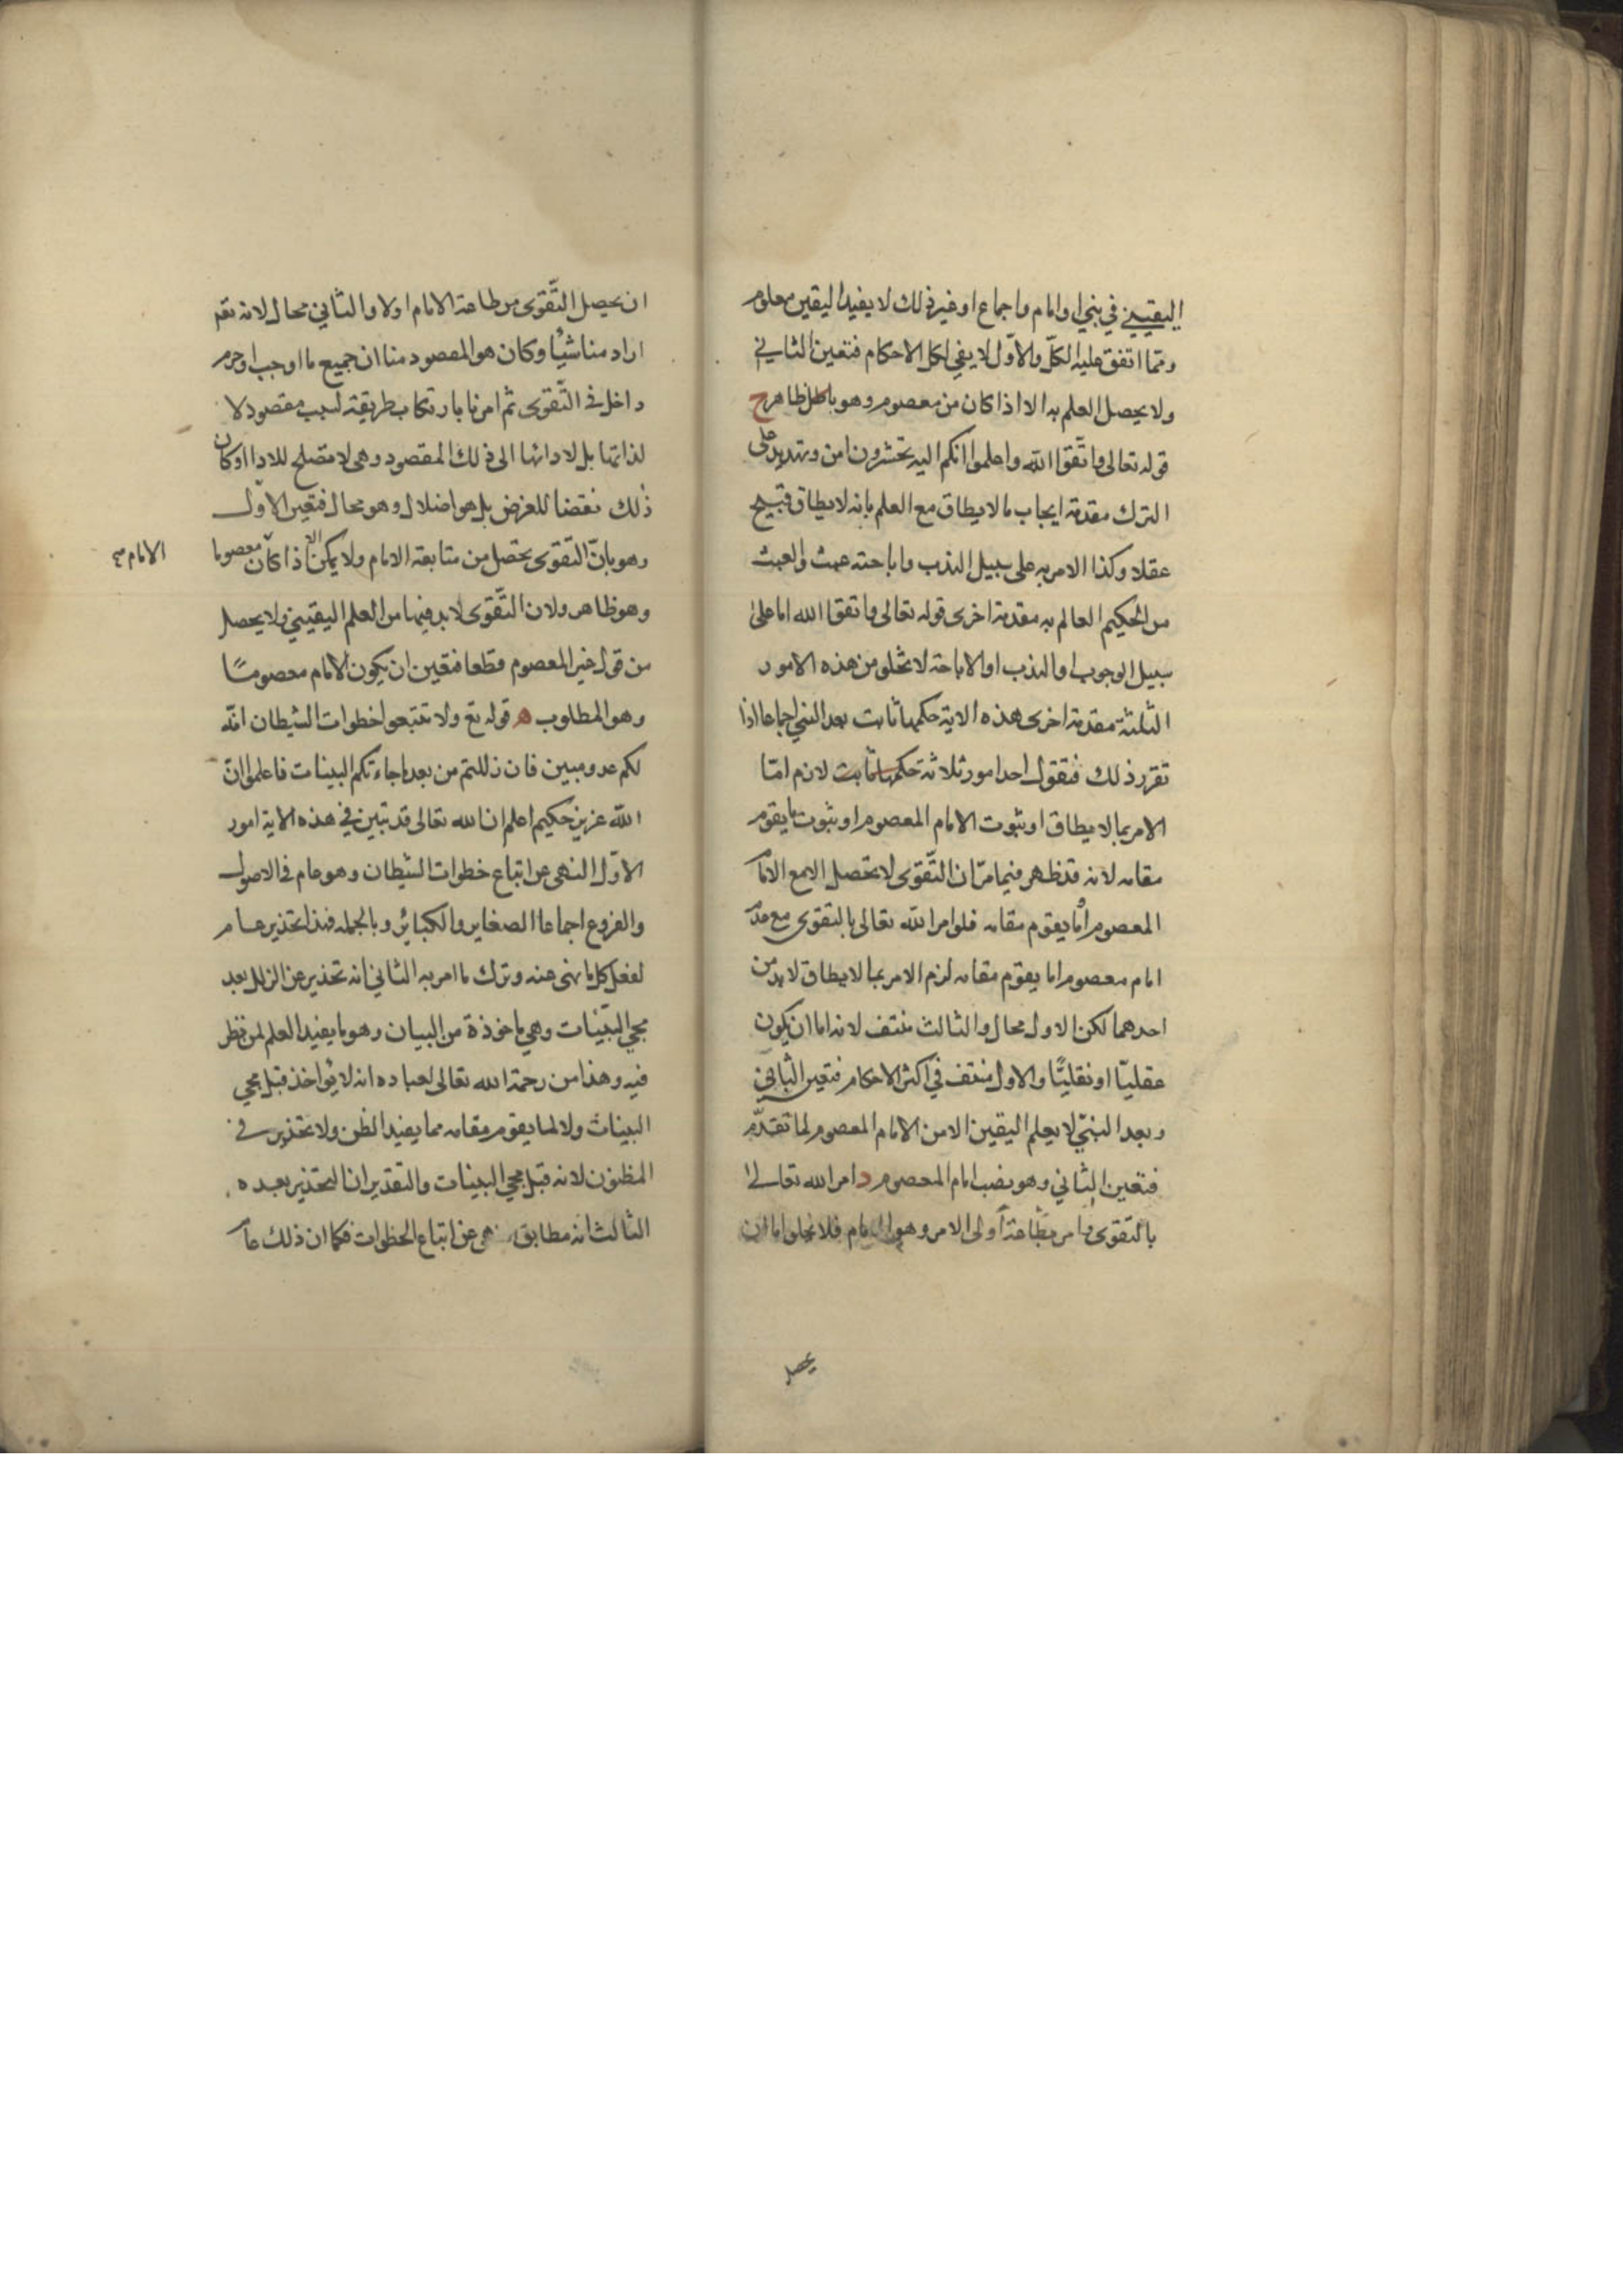 اليقيني في نبي او امام واجماع او غير ذلك لا يفيد اليقين معلوم
ومما اتفق عليه الكل والاول لا يفي لكل الاحكام فتعين الثاني
ولا يحصل العلم به الا اذا كان من معصوم وهو باطل ظاهر ح
قوله تعالى واتقوا الله واعلموا انكم اليه تحشرون امن وتهديد على
الترك مقدمة ايجاب ما لا يطاق مع العلم بانه لا يطاق قبيح
عقلا وكذا الامر به على سبيل الندب واباحته عبث والعبث
من الحكيم العالم به مقدمة اخرى قوله تعالى واتقوا الله اما على
سبيل الوجوب او الندب او الاباحة لا تخلو من هذه الامور
الثلثة مقدمة اخرى هذه الاية حكمها ثابت بعد النبي اجماعا اذا
تقرر ذلك فنقول احد امور ثلاثة حكمها ثابت لازم امّا
الامر بما لا يطاق او ثبوت الامام المعصوم او ثبوت ما يقوم
مقامه لانه قد ظهر فيما مرّ ان التّقوى لا تحصل الا مع الامام
المعصوم او ما يقوم مقامه فلو امر الله تعالى بالتقوى مع عدم
امام معصوم او ما يقوم مقامه لزم الامر بما لا يطاق لابد من
احدهما لكن الاول محال والثالث منتف لانه اما ان يكون
عقليّا او نقليًّا والاول منتف في اكثر الاحكام فتعين الثاني
وبعد النبيّ لا يعلم اليقين الا من الامام المعصوم لما تقدّم
فتعين الثاني وهو نصب امام المعصوم د امر الله تعالى
بالتّقوى وامر بطاعة اولى الامر وهو الامام فلا تخلو اما ان
يحصل
ان يحصل التّقوى من طاعة الامام اولا والثاني محال لانه تعم
اراد منا شيئا وكان هو المقصود منا ان جميع ما اوجب او حرم
داخل في التّقوى ثم امرنا بارتكاب طريقة لسبب مقصود لا
لذاتها بل لادائها الى ذلك المقصود وهى لا تصلح للادا او كان
ذلك نقضا للغرض بل هو اضلال وهو محال فتعين الاول
وهو بانّ التّقوى يحصل من متابعة الامام ولا يمكن الا اذا كان معصوما
الامام
وهو ظاهر ولان التّقوى لابد فيها من العلم اليقيني ولا يحصل
من قول غير المعصوم قطعا فتعين ان يكون الامام معصومًا
وهو المطلوب ه قوله تع ولا تتبعوا خطوات الشيطان انّه
لكم عدو مبين فان زللتم من بعد ما جاءتكم البينات فاعلموا انّ
الله عزيز حكيم اعلم ان الله تعالى قد تبين في هذه الاية امور
الاوّل النهى عن اتباع خطوات الشيطان وهو عام في الاصول
والفروع اجماعا الصغاير والكبائر وبالجمله فهذا تحذير عام
لفعل كل ما نهى عنه وترك ما امر به الثاني انه تحذير عن الزلل بعد
مجي البيّنات وهي ماخوذة من البيان وهو ما يفيد العلم لمن نظر
فيه وهذا من رحمة الله تعالى لعباده انه لا يؤاخذ قبل مجي
البينات ولا لما يقوم مقامه مما يفيد الظن ولا تحذير في
المظنون لانه قبل مجي البينات والتقدير ان التحذير بعده
الثالث انه مطابق نهى عن اتباع الخطوات فكما ان ذلك عام